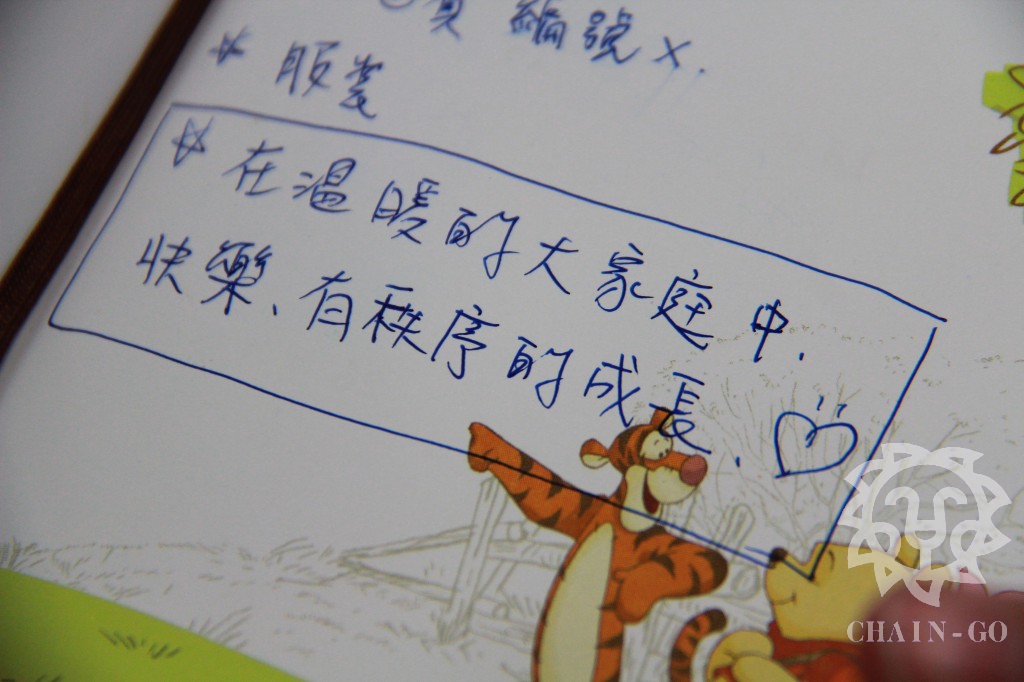 員 編號 x.
☆ 服裝
☆ 在溫暖的大家庭中.
快樂、有秩序的成長. ♡
CHAIN-GO